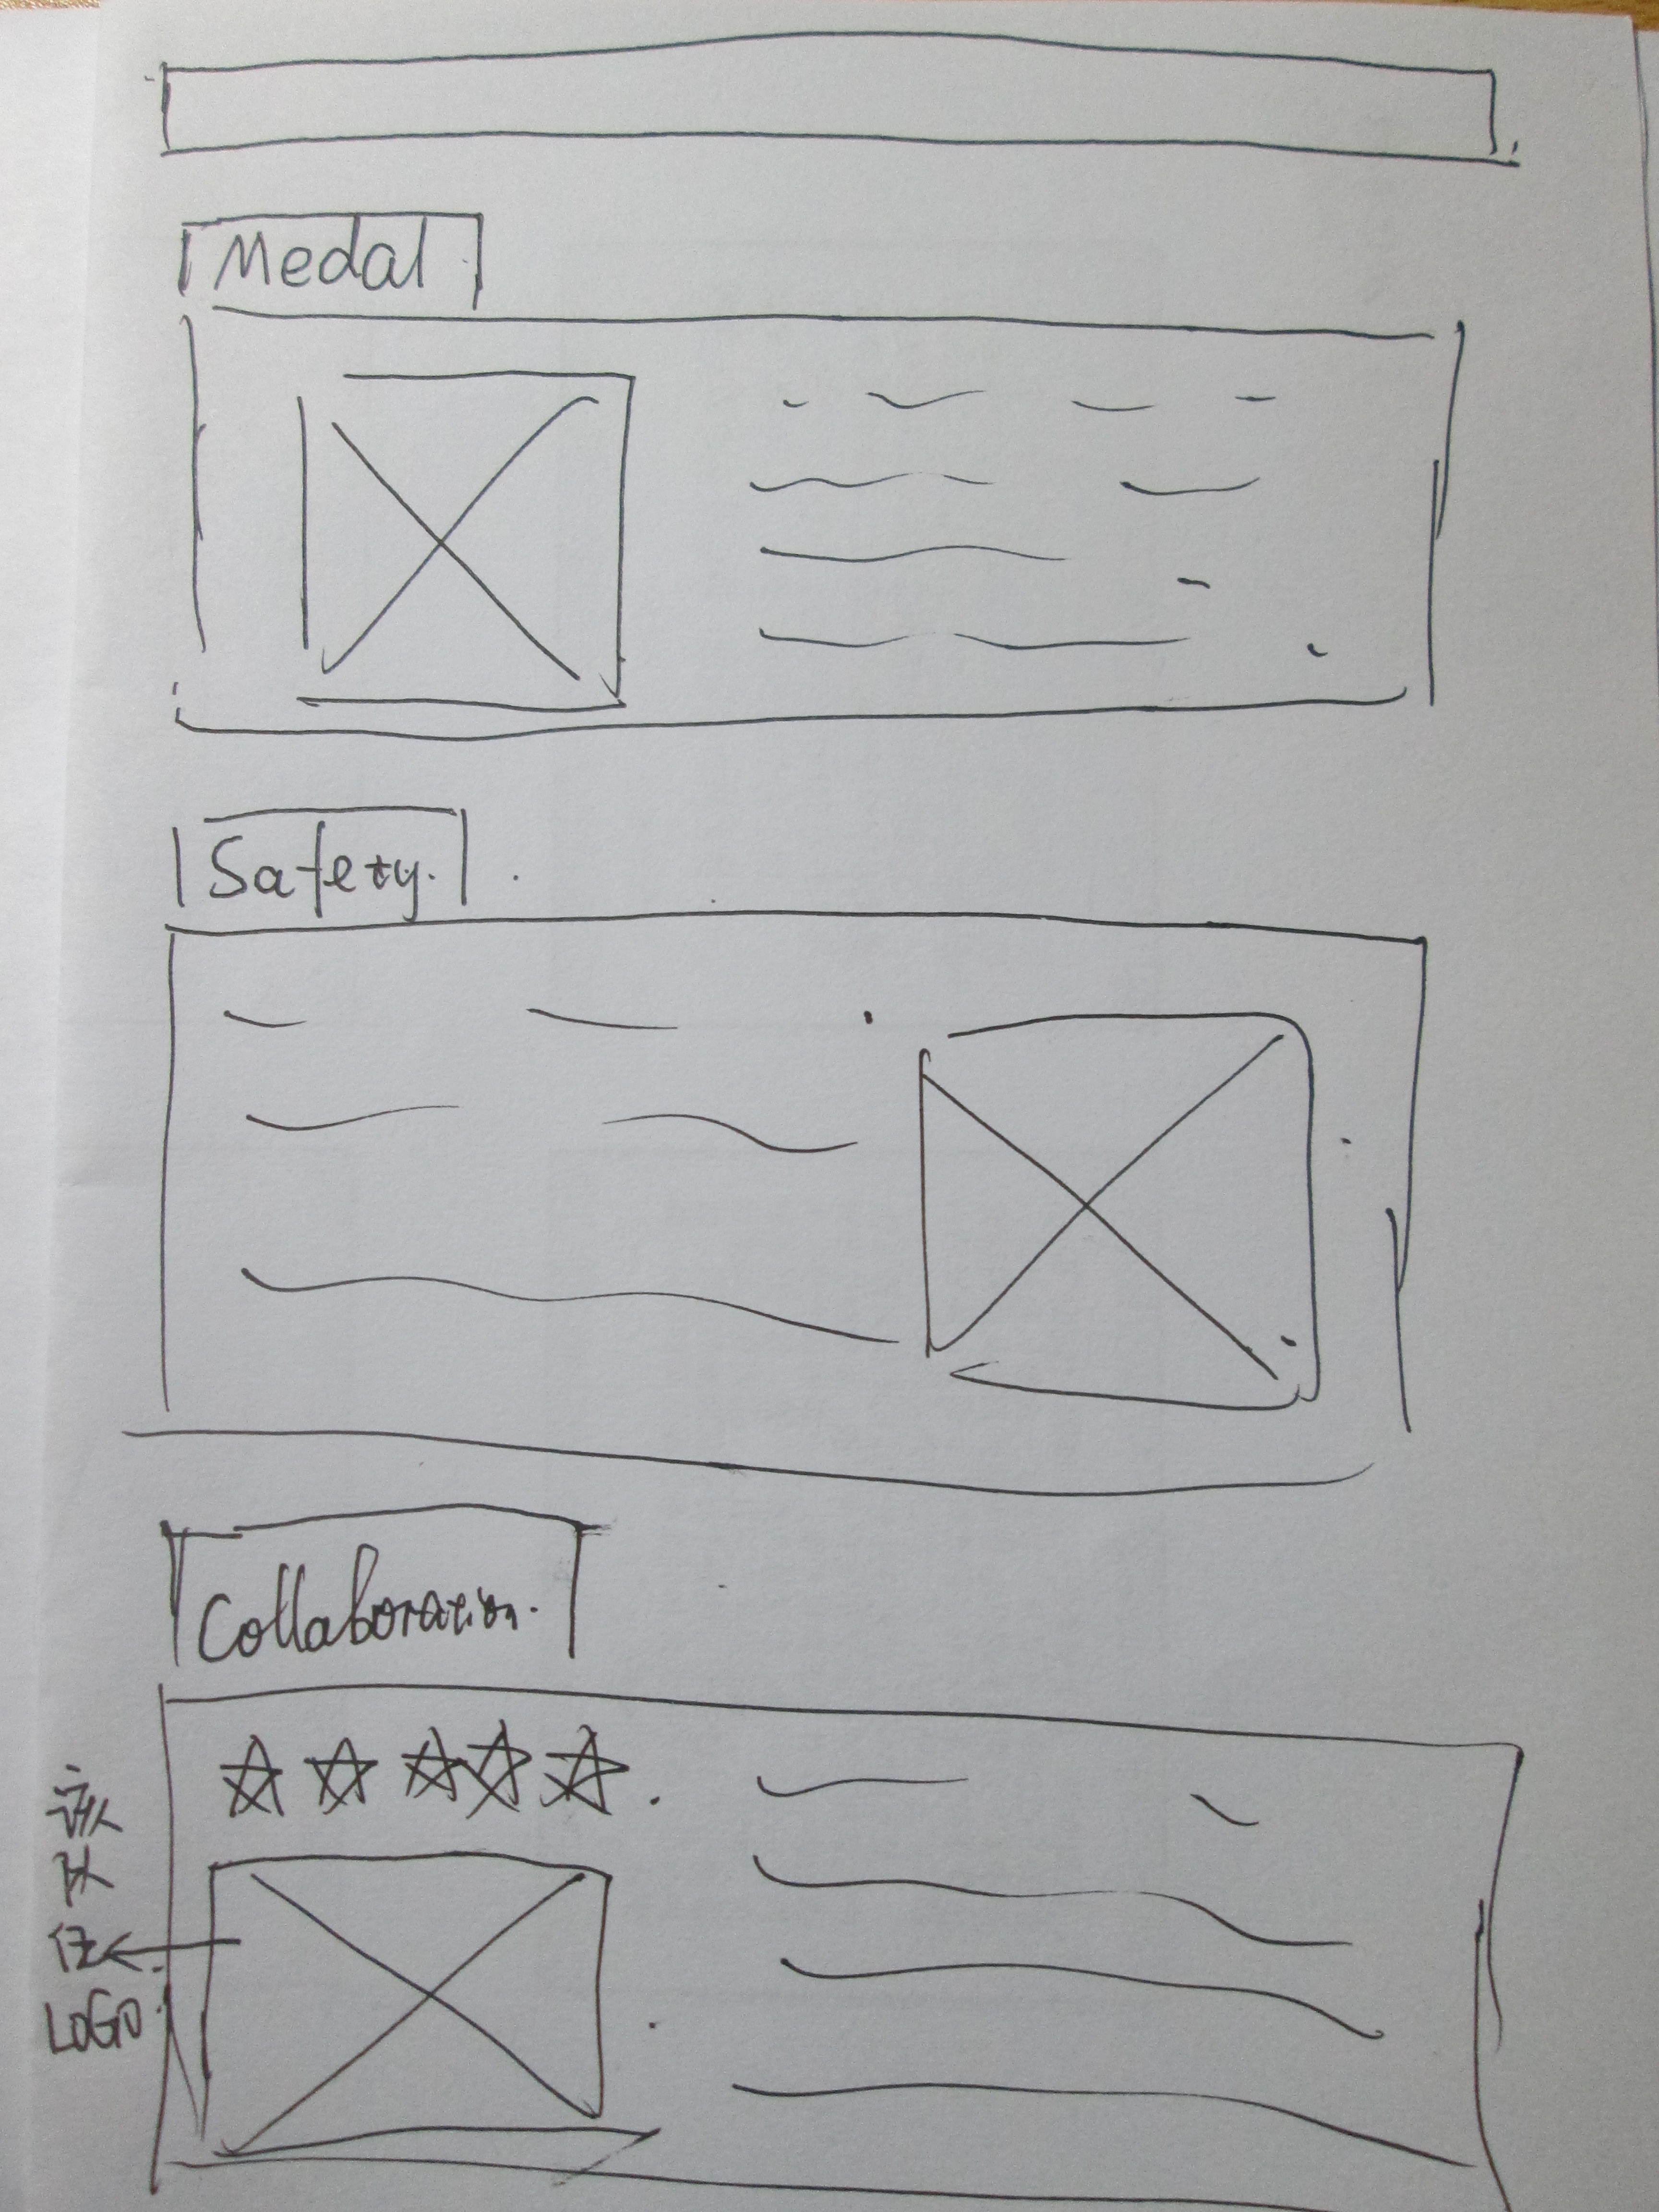 Medal
Safety.
Collaboration.
该
队
伍
LOGO